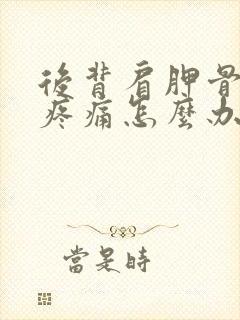 後背肩胛骨
疼痛怎麼办
當是時